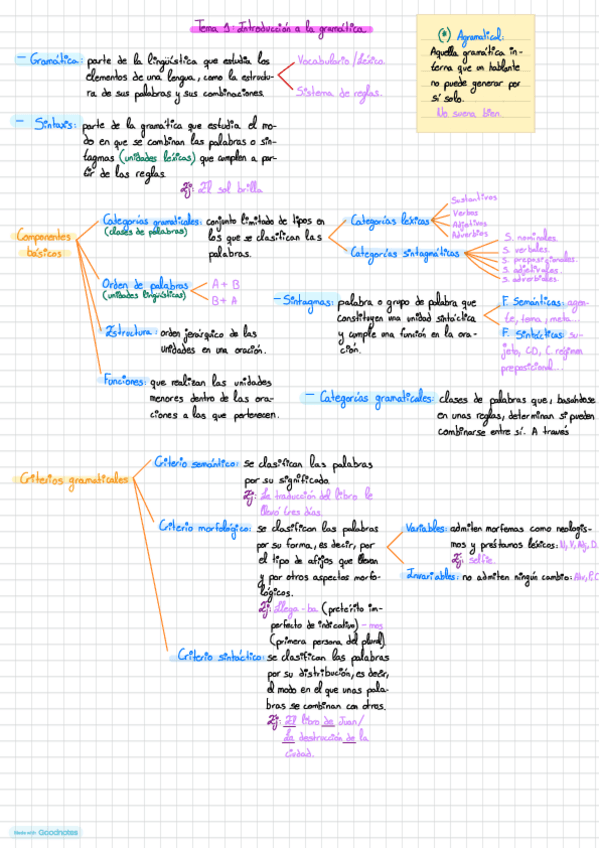 Tema 1: Introducción a la gramática.
(*) Agramatical:
Aquella gramática in-
terna que un hablante
no puede generar por
sí solo.
No suena bien.
- Gramática: parte de la lingüística que estudia los
elementos de una lengua, como la estructu-
ra de sus palabras y sus combinaciones.
Vocabulario / Léxico.
Sistema de reglas.
- Sintaxis: parte de la gramática que estudia el mo-
do en que se combinan las palabras o sin-
tagmas (unidades léxicas) que cumplen a par-
tir de las reglas.
Ej: El sol brilla
Componentes
básicos
Categorías gramaticales: conjunto limitado de tipos en
(clases de palabras)
los que se clasifican las
palabras.
Categorías léxicas
Sustantivos
Verbos
Adjetivos
Adverbios
Categorías sintagmáticas
S. nominales.
S. verbales.
S. preposicionales.
S. adjetivales.
S. adverbiales.
Orden de palabras
(unidades lingüísticas)
A + B
B + A
- Sintagmas: palabra o grupo de palabra que
constituyen una unidad sintáctica
y cumple una función en la ora-
ción.
F. Semánticas: agen-
te, tema, meta...
F. Sintácticas: su-
jeto, CD, C. régimen
preposicional...
Estructura: orden jerárquico de las
unidades en una oración.
Funciones: que realizan las unidades
menores dentro de las ora-
ciones a las que pertenecen.
- Categorías gramaticales: clases de palabras que, basándose
en unas reglas, determinan si pueden
combinarse entre sí. A través
Criterios gramaticales
Criterio semántico: se clasifican las palabras
por su significado.
Ej: La traducción del libro le
llevó tres días.
Criterio morfológico: se clasifican las palabras
por su forma, es decir, por
el tipo de afijos que llevan
y por otros aspectos morfo-
lógicos.
Ej: Llega - ba (pretérito im-
perfecto de indicativo) - mos
(primera persona del plural).
Variables: admiten morfemas como neologis-
mos y préstamos léxicos: N, V, Adj, D.
Ej: selfie.
Invariables: no admiten ningún cambio: Adv, P, C
Criterio sintáctico: se clasifican las palabras
por su distribución, es decir,
el modo en el que unas pala-
bras se combinan con otras.
Ej: El libro de Juan/
La destrucción de la
ciudad.
Made with Goodnotes